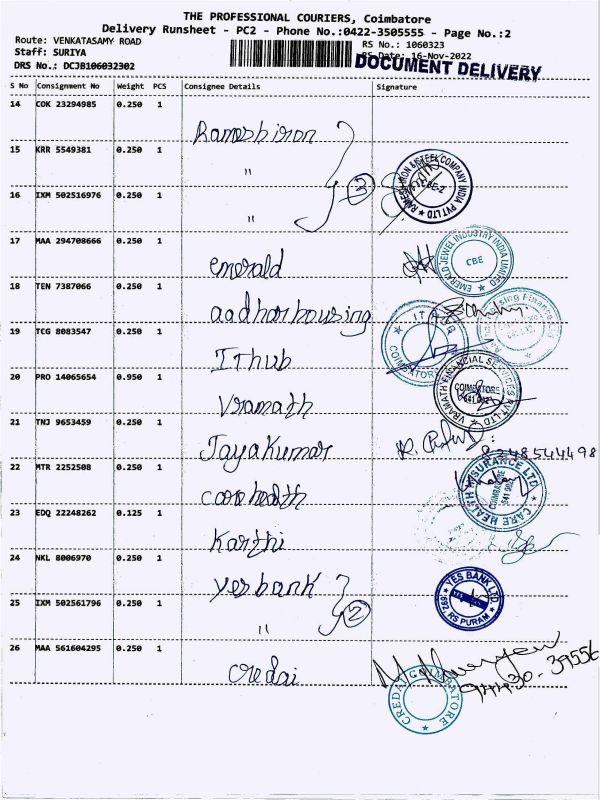 THE PROFESSIONAL COURIERS, Coimbatore
Delivery Runsheet - PC2 - Phone No.:0422-3505555 - Page No.:2
Route: VENKATASAMY ROAD
RS No.: 1060323
Staff: SURIYA
RS Date: 16-Nov-2022
DRS No.: DCJB106032302
DOCUMENT DELIVERY
S No Consignment No Weight PCS Consignee Details Signature
14 COK 23294985 0.250 1
Ramesh iron
15 KRR 5549381 0.250 1
"
3
RAMESH IRON & STEEL COMPANY INDIA PVT LTD
CBE-2
16 IXM 502516976 0.250 1
"
17 MAA 294708666 0.250 1
emerald
EMERALD JEWEL INDUSTRY INDIA LIMITED
CBE
18 TEN 7387066 0.250 1
aadharhousing
19 TCG 8083547 0.250 1
IThub
COIMBATORE
20 PRO 14065654 0.950 1
Vramath
VRAMATH FINANCIAL SERVICES PVT LTD
COIMBATORE
21 TNJ 9653459 0.250 1
Jayakumar
8248544498
22 MTR 2252508 0.250 1
care health
CARE HEALTH INSURANCE LTD
COIMBATORE
23 EDQ 22248262 0.125 1
Karthi
24 NKL 8006970 0.250 1
yes bank
2
YES BANK LTD
RS PURAM
25 IXM 502561796 0.250 1
"
26 MAA 561604295 0.250 1
credai
94430-39556
CREDAI COIMBATORE